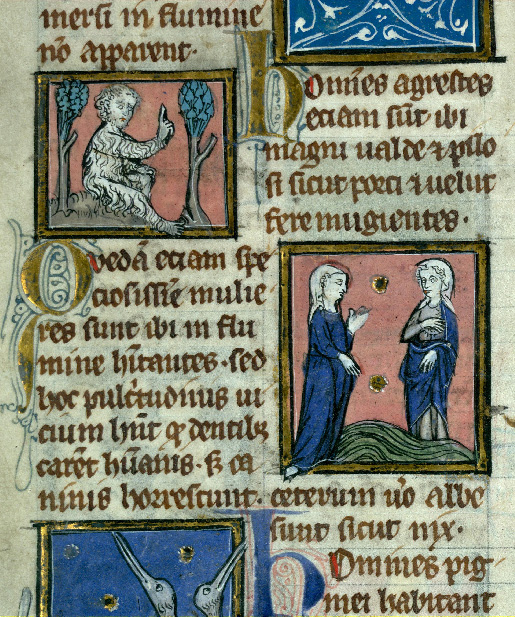 mersi in flumine
nō apparent·
Homīes agrestes
eciam sūt ibi
magni ualde ⁊ pilo
si sicut porci ⁊ uelut
fere mugientes·
Quedā eciam spe
ciosissīe mulie
res sunt ibi in flu
mine hītantes· sed
hoc pulc̄tudinis ui
cium hn̄t ꝙ dentibꝫ
carēt hūanis· sꝫ ca
ninis horrescunt· ceterum ūo albe
sunt sicut nix·
Homines pig
mei habitant